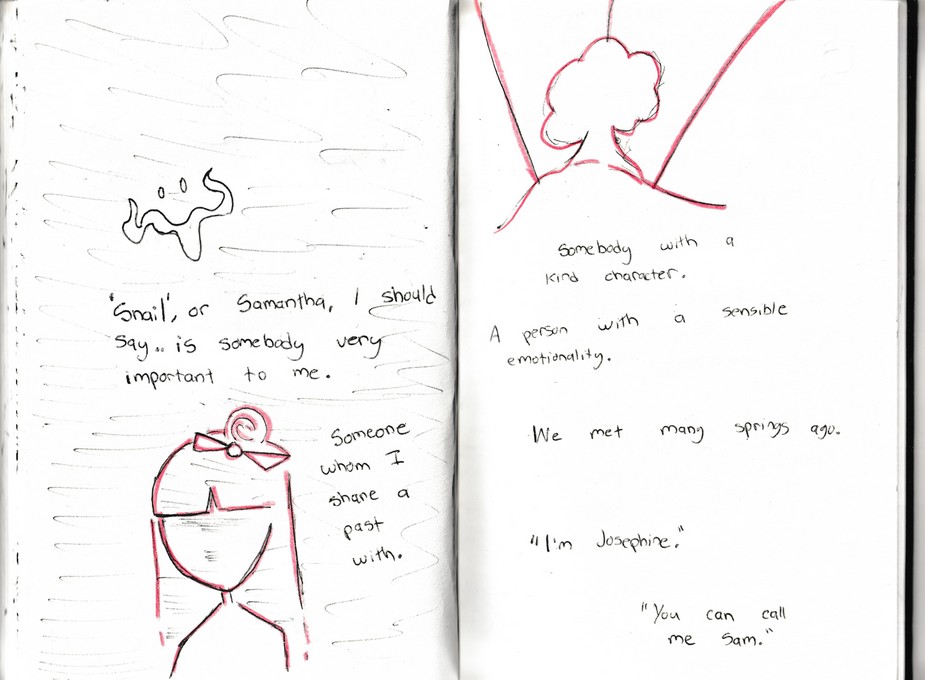 'Snail', or Samantha, I should
say.. is somebody very
important to me.
Someone
whom I
share a
past
with.
Somebody with a
kind character.
A person with a sensible
emotionality.
We met many springs ago.
"I'm Josephine."
"You can call
me Sam."